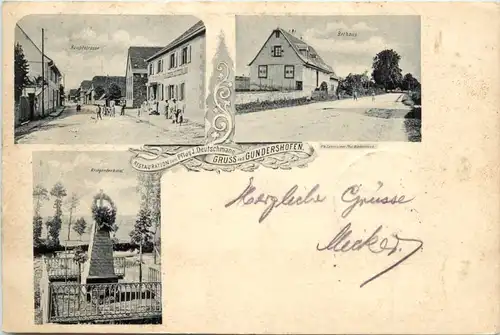 Hauptstrasse
Rathaus
RESTAURATION zum Pflug J. Deutschmann
GRUSS aus GUNDERSHOFEN.
Kriegerdenkmal
Herzliche Grüsse